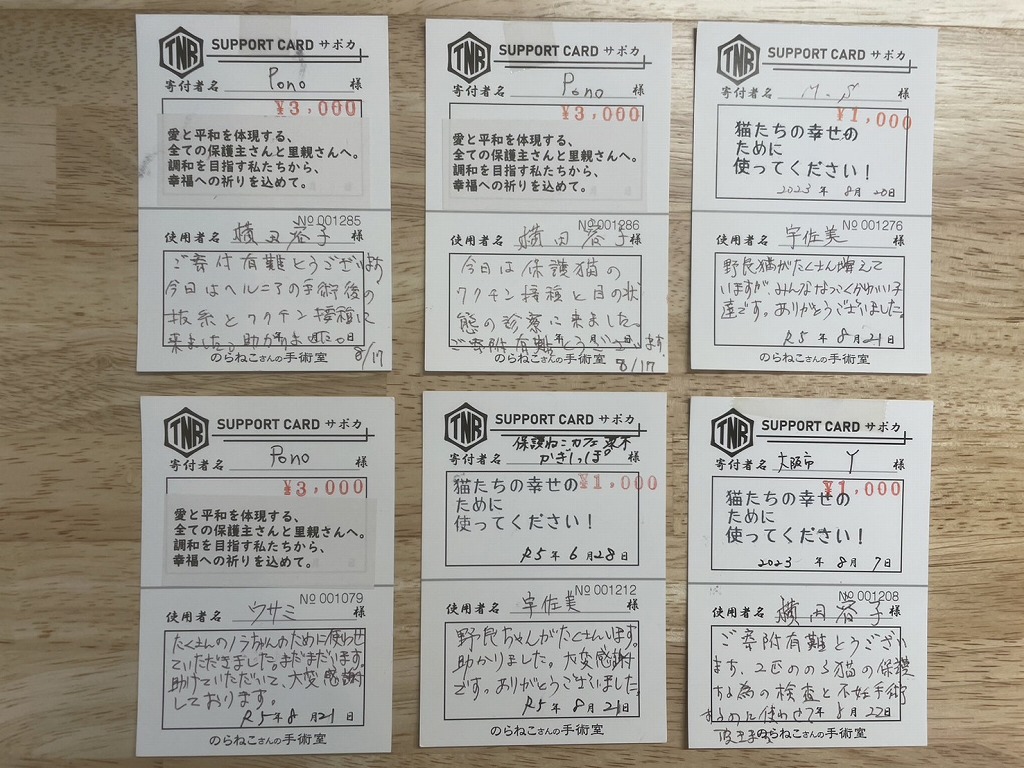 TNR SUPPORT CARD サポカ
寄付者名 Pono 様
¥3,000
愛と平和を体現する、
全ての保護主さんと里親さんへ。
調和を目指す私たちから、
幸福への祈りを込めて。
No 001285
使用者名 横田容子 様
ご寄付有難とうございます
今日はヘルニアの手術後の
抜糸とワクチン接種に
来ました。助かりま
8/17
のらねこさんの手術室
TNR SUPPORT CARD サポカ
寄付者名 Pono 様
¥3,000
愛と平和を体現する、
全ての保護主さんと里親さんへ。
調和を目指す私たちから、
幸福への祈りを込めて。
No 001286
使用者名 横田容子 様
今日は保護猫の
ワクチン接種と目の状
態の診察に来ました。
ご寄附有難とうございます
8/17
のらねこさんの手術室
TNR SUPPORT CARD サポカ
寄付者名 M.S 様
¥1,000
猫たちの幸せの
ために
使ってください！
2023 年 8月 20日
No 001276
使用者名 宇佐美 様
野良猫がたくさん増えて
いますが、みんななつくかわいい子
達です。ありがとうございました。
R5 年 8月 21日
のらねこさんの手術室
TNR SUPPORT CARD サポカ
寄付者名 Pono 様
¥3,000
愛と平和を体現する、
全ての保護主さんと里親さんへ。
調和を目指す私たちから、
幸福への祈りを込めて。
No 001079
使用者名 ウサミ 様
たくさんのノラちゃんのために使わせ
ていただきました。まだまだいます。
助けていただいて、大変感謝
しております。
R5 年 8月 21日
のらねこさんの手術室
TNR SUPPORT CARD サポカ
保護ねこカフェ 栗木
寄付者名 かぎしっぽ 様
猫たちの幸せの ¥1,000
ために
使ってください！
R5 年 6月 28日
No 001212
使用者名 宇佐美 様
野良ちゃんがたくさんいます。
助かりました。大変感謝
です。ありがとうございました。
R5 年 8月 21日
のらねこさんの手術室
TNR SUPPORT CARD サポカ
寄付者名 大阪市 Y 様
¥1,000
猫たちの幸せの
ために
使ってください！
2023 年 8月 7日
No 001208
使用者名 横田容子 様
ご寄附有難とうござい
ます、2匹ののら猫の保護
する為の検査と不妊手術
するのに使わせて 年 8月 22日
のらねこさんの手術室